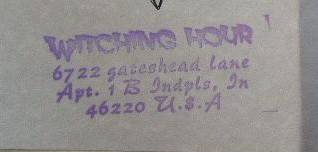 WITCHING HOUR
6722 gateshead lane
Apt. 1 B Indpls, In
46220 U.S.A